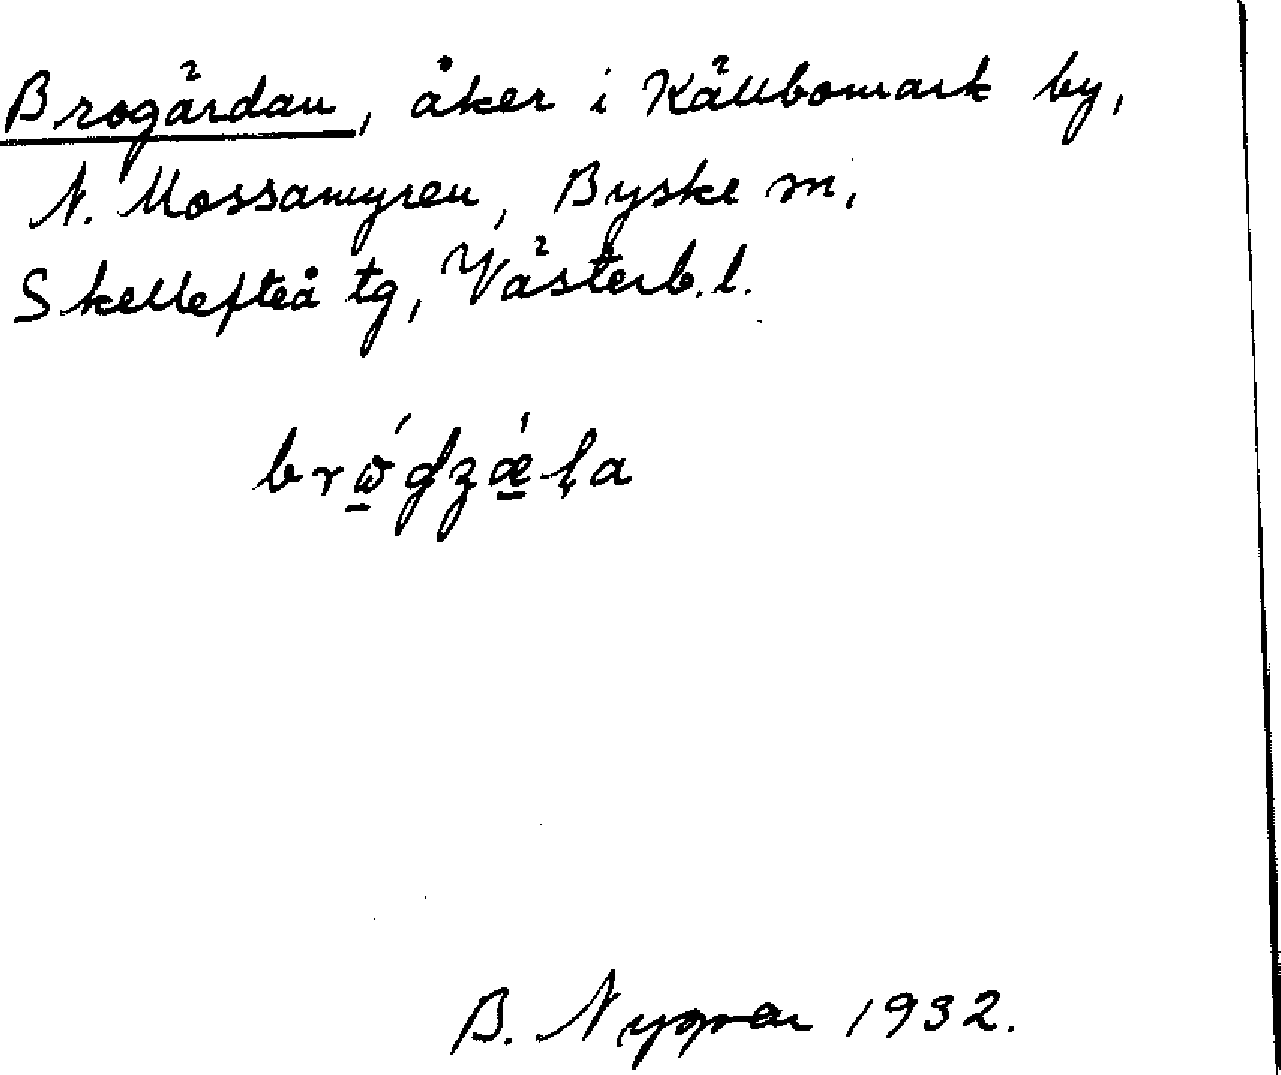 Brogärdan, åker i Källbomark by,
N. Mossamyren, Byske sn,
Skellefteå tg, Västerb. l.
B. Nygren 1932.